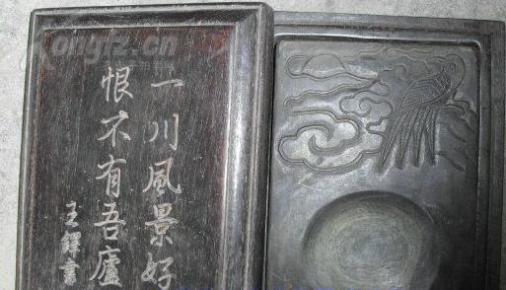 一川風景好
恨不有吾廬
王鐸書
kongfz.cn